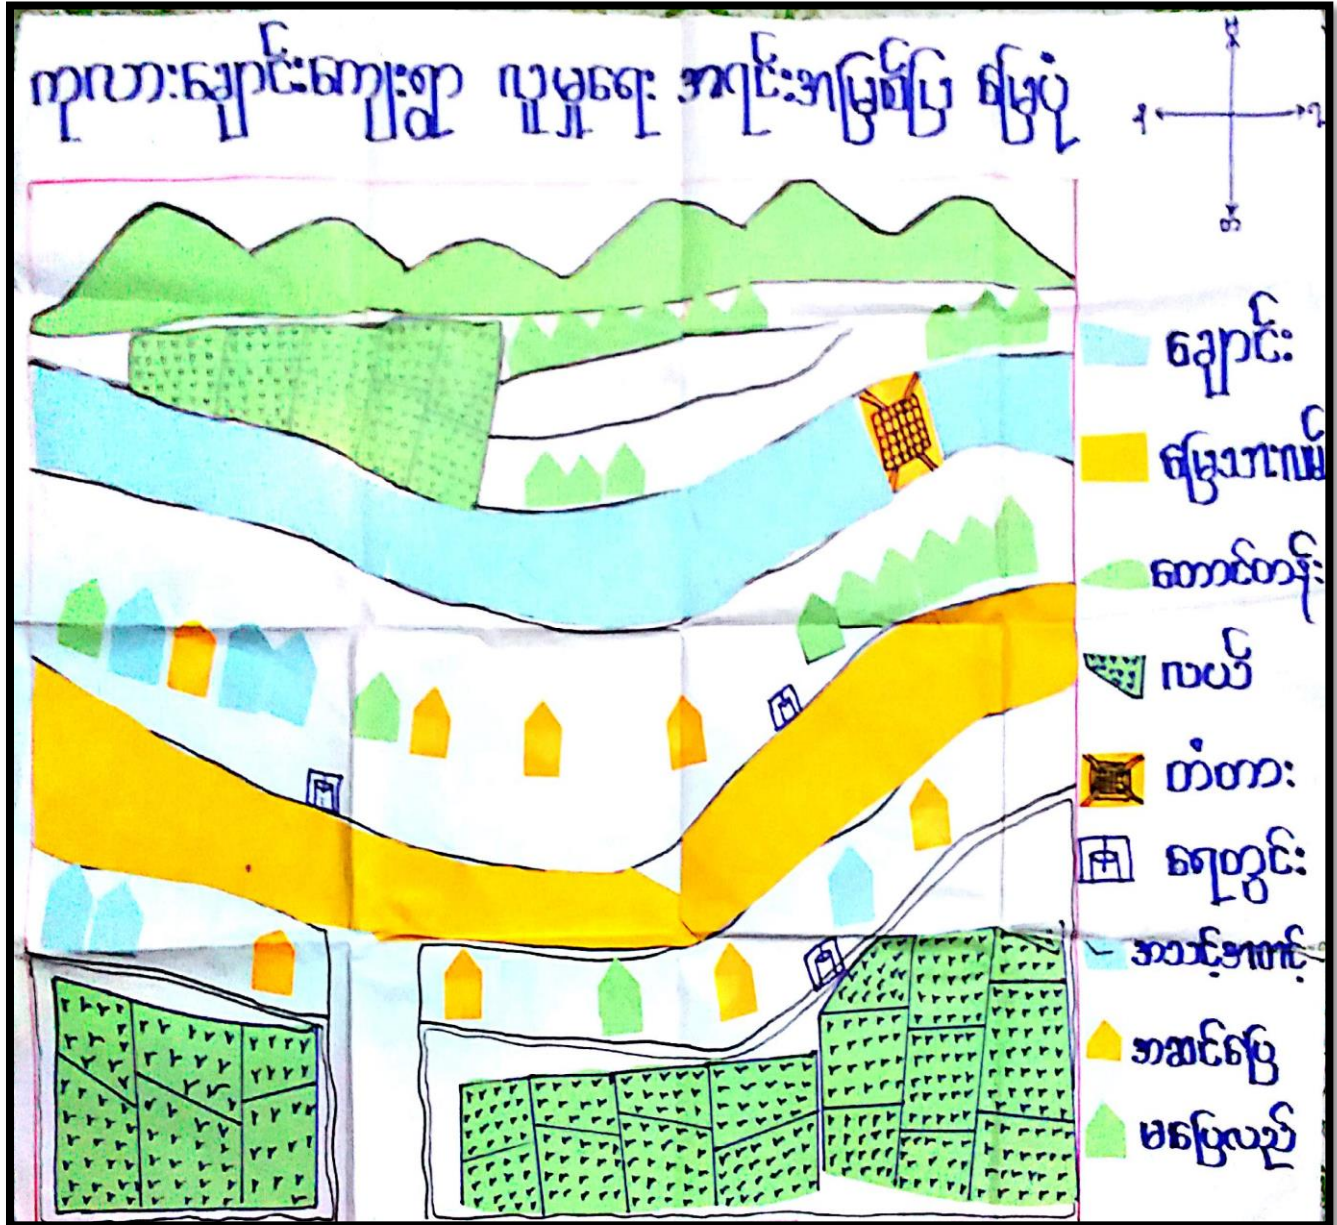 ကုလားချောင်းကျေးရွာ လူမှုရေး အရင်းအမြစ်ပြ မြေပုံ
မ
န
ချောင်း
မြေသားလမ်း
တောင်တန်း
လယ်
တံတား
ရေတွင်း
အသင့်အတင့်
အဆင်ပြေ
မပြေလည်